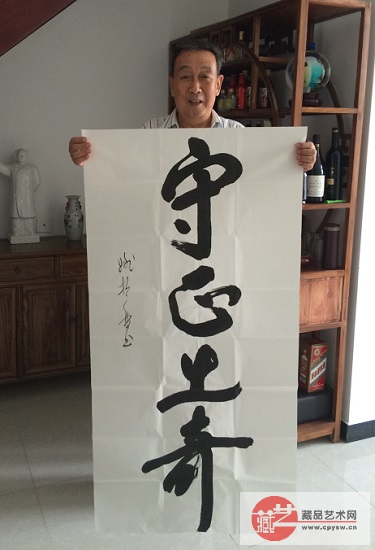 守正出奇
藏艺
藏品艺术网
www.cpysw.cn